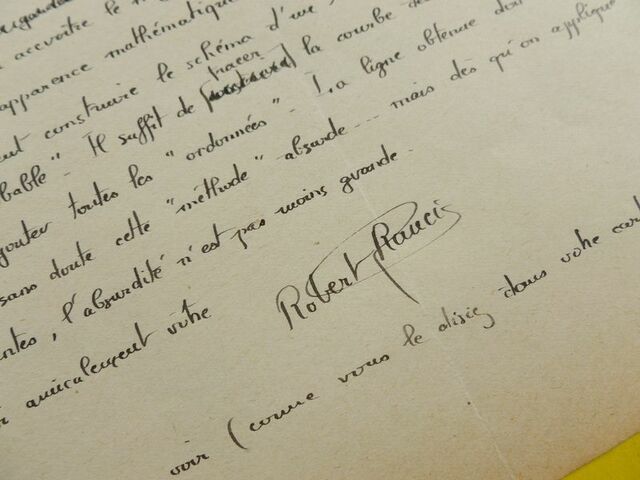 accroître le
apparence mathématique
construire le schéma d'une
tracer
bable". Il suffit de la courbe de
jouter toutes les "ordonnées". La ligne obtenue
sans doute cette "méthode" absurde... mais dès qu'on applique
ntes, l'absurdité n'est pas moins grande.
amicalement vôtre
Robert Francis
voir (comme vous le disiez dans votre cart